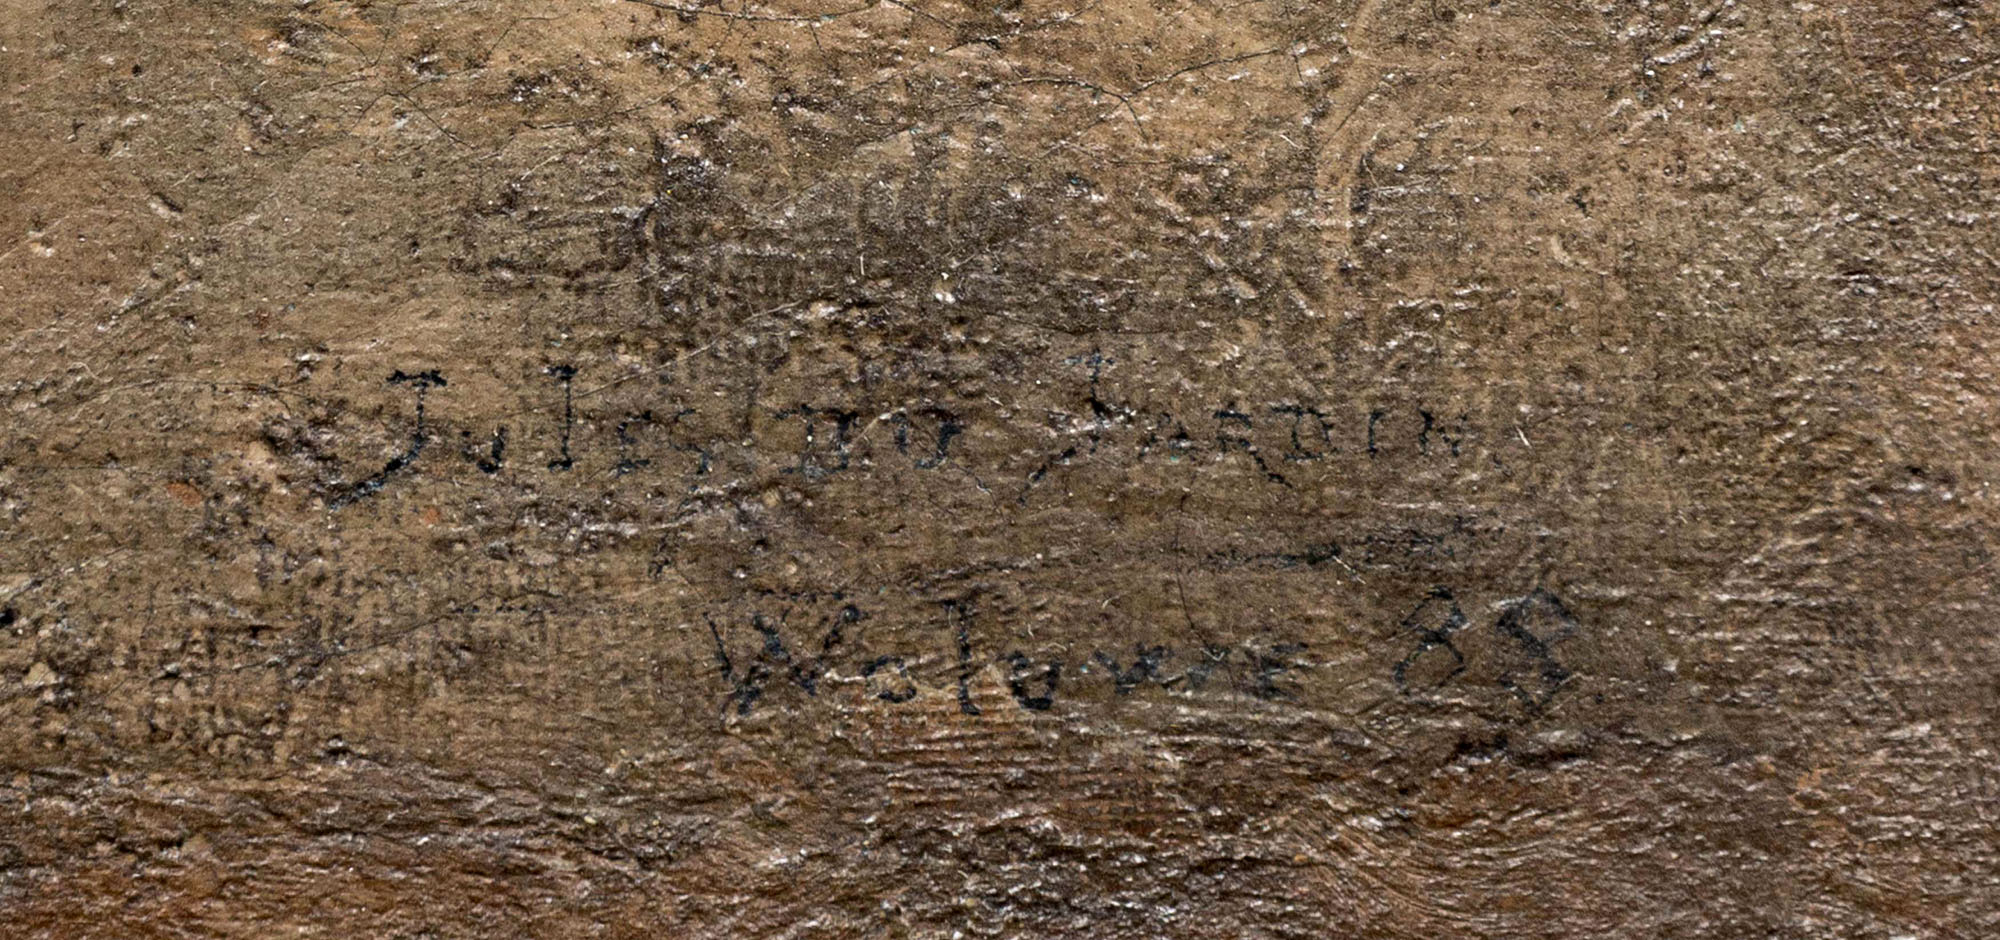 Jules DU JARDIN
Woluwe 85